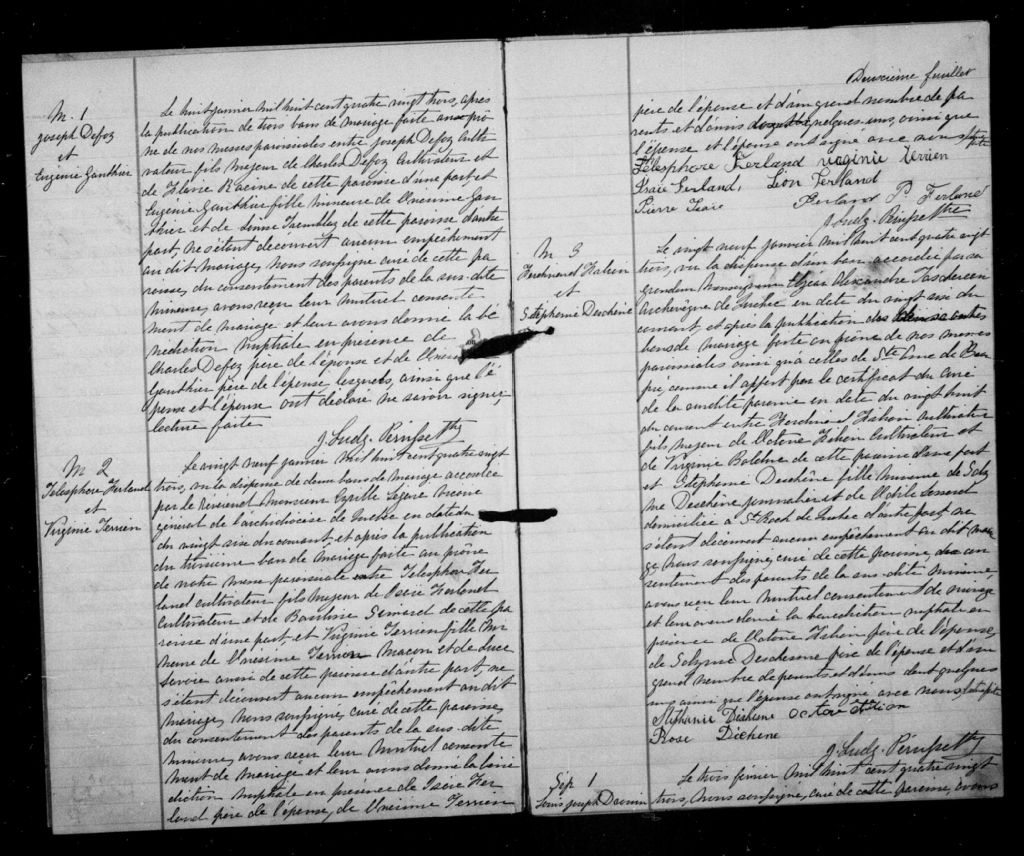 M. 1
Joseph Defoy
et
Eugénie Gauthier
Le huit janvier mil huit cent quatre vingt trois, après
la publication de trois bans de mariage faite au prô
ne de nos messes paroissiales entre Joseph Defoy culti
vateur fils majeur de Charles Defoy cultivateur et
de Racine de cette paroisse d'une part, et
Eugénie Gauthier fille mineure de Onésime Gau
thier et de Tremblay de cette paroisse d'autre
part, ne s'étant découvert aucun empêchement
au dit mariage, nous soussigné curé de cette pa
roisse, du consentement des parents de la sus-dite
mineure, avons reçu leur mutuel consente
ment de mariage et leur avons donné la bé
nédiction nuptiale en présence de
Charles Defoy père de l'époux et de Onésime
Gauthier père de l'épouse lesquels, ainsi que l'é
poux et l'épouse ont déclaré ne savoir signer,
lecture faite
J. Ludg.
M 2
Telesphore Ferland
et
Virginie Terrien
Le vingt neuf janvier mil huit cent quatre vingt
trois, vu la dispense de deux bans de mariage accordée
par le révérend Monsieur Cyrille Légaré vicaire
général de l'archidiocèse de Québec en date du
du vingt six du courant, et après la publication
du troisième ban de mariage faite au prône
de notre messe paroissiale entre Telesphore Fer
land cultivateur fils majeur de Isaïe Ferland
cultivateur et de Basiline Simard de cette pa
roisse d'une part, et Virginie Terrien fille mi
neure de Onésime Terrien Macon et de Luce
Savoie aussi de cette paroisse d'autre part, ne
s'étant découvert aucun empêchement au dit
mariage, nous soussigné, curé de cette paroisse,
du consentement des parents de la sus-dite
mineure, avons reçu leur mutuel consente
ment de mariage et leur avons donné la béné
diction nuptiale en présence de Isaïe Fer
land père de l'époux, de Onésime Terrien
Deuxième feuillet
père de l'épouse et d'un grand nombre de pa
rents et d'amis quelques uns, ainsi que
l'époux et l'épouse ont signé avec nous lecture faite
Telesphore Ferland virginie terrien
Isaïe Ferland, Léon Ferland
Pierre Isaïe Ferland P Ferland
J. Ludg.
M 3
Ferdinand Filion
et
Stéphanie Deschêne
Le vingt neuf janvier mil huit cent quatre vingt
trois, vu la dispense d'un ban accordée par sa
grandeur Monseigneur Elzéar Alexandre Taschereau
Archevêque de Québec en date du vingt six du
courant, et après la publication des deux autres
bans de mariage faite au prône de nos messes
paroissiales ainsi qu'à celles de Ste Anne de Beau
pré, comme il appert par le certificat du curé
de la susdite paroisse en date du vingt huit
du courant entre Ferdinand Filion cultivateur
fils majeur de Octave Filion cultivateur et
de Virginie Bolduc de cette paroisse d'une part
et Stéphanie Deschêne fille mineure de Soly
me Deschêne journalier et de Odile
domiciliée à St Roch de Québec d'autre part ne
s'étant découvert aucun empêchement au dit maria
ge, nous soussigné, curé de cette paroisse, du con
sentement des parents de la sus-dite mineure,
avons reçu leur mutuel consentement de mariage
et leur avons donné la bénédiction nuptiale en
présence de Octave Filion père de l'époux,
de Solyme Deschesne père de l'épouse et d'un
grand nombre de parents et d'amis dont quelques
uns ainsi que l'épouse ont signé avec nous lecture faite
Stéphanie Dechene octave filion
Rose Dechene
J. Ludg.
Sép 1
Louis Joseph
Le trois février mil huit cent quatre vingt
trois, nous soussigné, curé de cette paroisse, avons